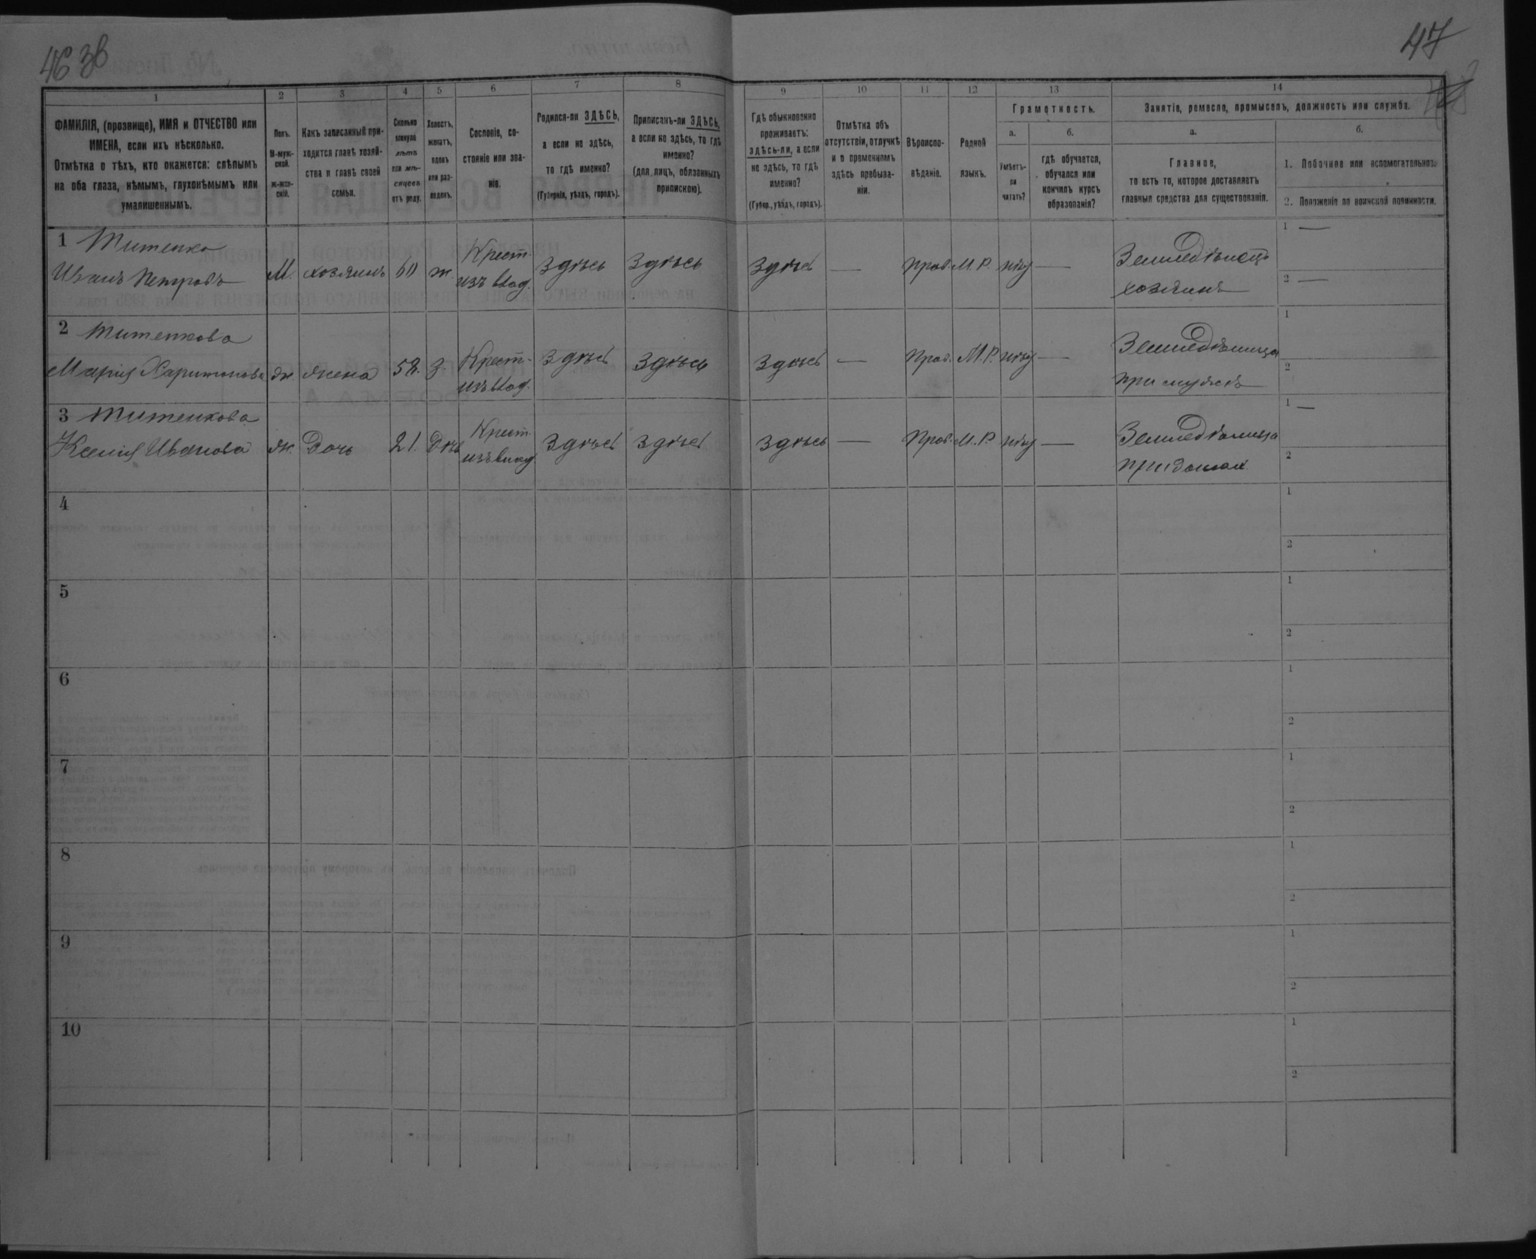 46 зв
47
1
2
3
4
5
6
7
8
9
10
11
12
13
14
ФАМИЛІЯ, (прозвище), ИМЯ и ОТЧЕСТВО или
ИМЕНА, если ихъ нѣсколько.
Отмѣтка о тѣхъ, кто окажется: слѣпымъ
на оба глаза, нѣмымъ, глухонѣмымъ или
умалишеннымъ.
Полъ.
М-муж-
ской.
ж-жен-
скій.
Какъ записанный при-
ходится главѣ хозяй-
ства и главѣ своей
семьи.
Сколько
минуло
лѣтъ
или мѣ-
сяцевъ
отъ роду.
Холостъ,
женатъ,
вдовъ
или раз-
веденъ.
Сословіе, со-
стояніе или зва-
ніе.
Родился-ли ЗДѢСЬ,
а если не здѣсь,
то гдѣ именно?
(Губернія, уѣздъ, городъ).
Приписанъ-ли ЗДѢСЬ,
а если не здѣсь, то гдѣ
именно?
(для лицъ, обязанныхъ
припискою).
Гдѣ обыкновенно
проживаетъ:
здѣсь-ли, а если
не здѣсь, то гдѣ
именно?
(Губер., уѣздъ, городъ).
Отмѣтка объ
отсутствіи, отлучкѣ
и о временномъ
здѣсь пребыва-
ніи.
Вѣроиспо-
вѣданіе.
Родной
языкъ.
Грамотность.
а.
Умѣетъ-
ли
читать?
б.
гдѣ обучается,
обучался или
кончилъ курсъ
образованія?
Занятіе, ремесло, промыселъ, должность или служба.
а.
Главное,
то есть то, которое доставляетъ
главныя средства для существованія.
б.
1. Побочное или вспомогательное.
2. Положеніе по воинской повинности.
1 Титенко
Иванъ Петровъ М. хозяинъ 60 ж Крест. изъ влад. здѣсь здѣсь здѣсь — прав. М.Р. нѣт — Земледѣлецъ хозяинъ 1 — 2 —
2 Титенкова
Марія Харитонова ж. жена 58. з. Крест. изъ влад. здѣсь здѣсь здѣсь — Прав. М.Р. нѣт — Земледѣлица при мужѣ 1 2
3 Титенкова
Ксенія Иванова ж. Дочь 21. Крест. изъ влад здѣсь здѣсь здѣсь — Прав. М.Р. нѣт — Земледѣлица 1 — 2
4 1
2
5 1
2
6 1
2
7 1
2
8 1
2
9 1
2
10 1
2